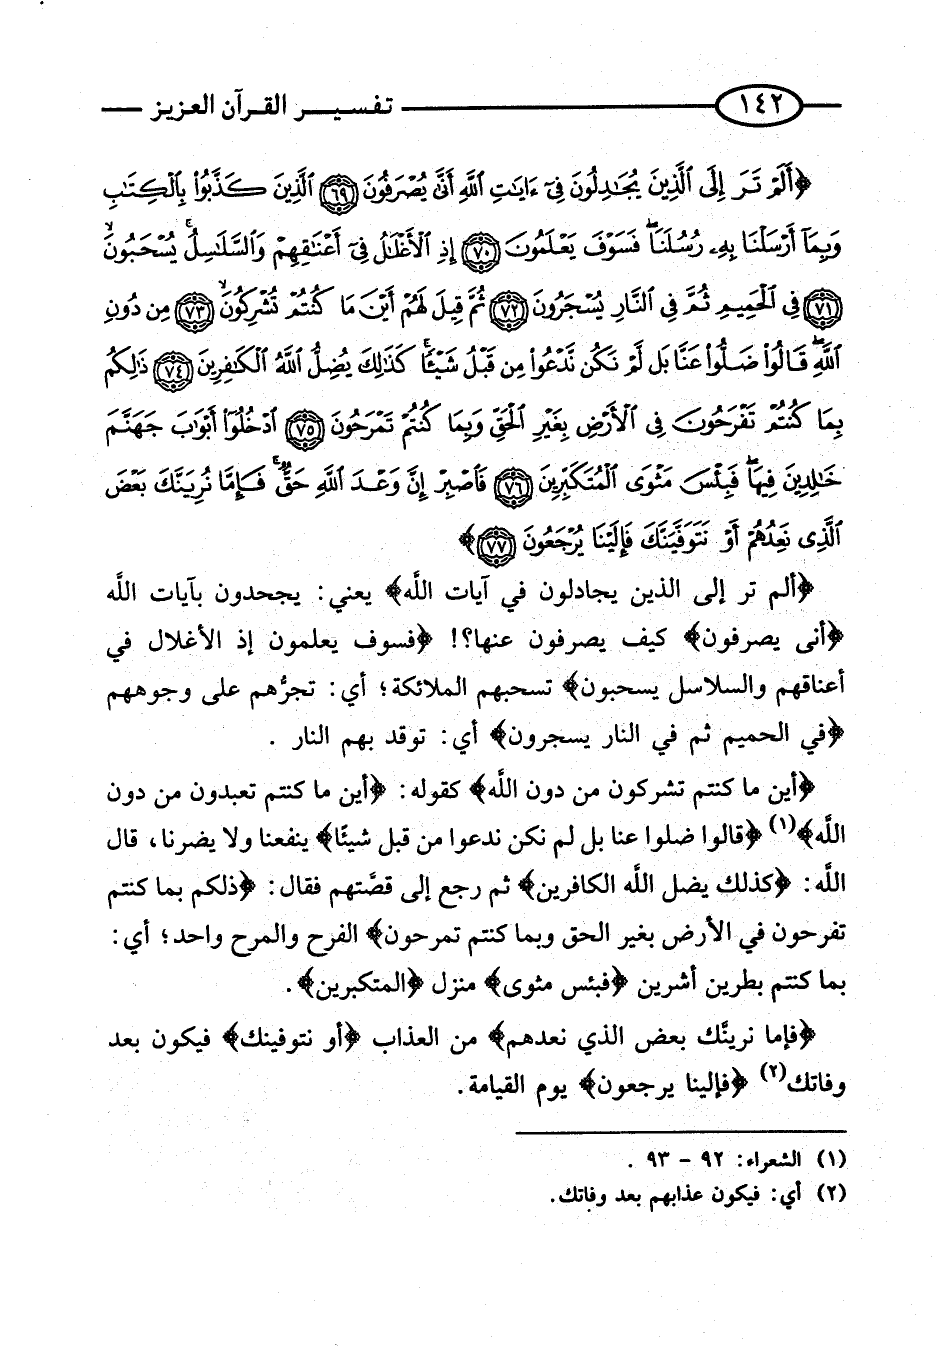 ١٤٢ تفسير القرآن العزيز
﴿أَلَمْ تَرَ إِلَى ٱلَّذِينَ يُجَـٰدِلُونَ فِىٓ ءَايَـٰتِ ٱللَّهِ أَنَّىٰ يُصْرَفُونَ ٦٩ ٱلَّذِينَ كَذَّبُوا۟ بِٱلْكِتَـٰبِ
وَبِمَآ أَرْسَلْنَا بِهِۦ رُسُلَنَا ۖ فَسَوْفَ يَعْلَمُونَ ٧٠ إِذِ ٱلْأَغْلَـٰلُ فِىٓ أَعْنَـٰقِهِمْ وَٱلسَّلَـٰسِلُ يُسْحَبُونَ
٧١ فِى ٱلْحَمِيمِ ثُمَّ فِى ٱلنَّارِ يُسْجَرُونَ ٧٢ ثُمَّ قِيلَ لَهُمْ أَيْنَ مَا كُنتُمْ تُشْرِكُونَ ٧٣ مِن دُونِ
ٱللَّهِ ۖ قَالُوا۟ ضَلُّوا۟ عَنَّا بَل لَّمْ نَكُن نَّدْعُوا۟ مِن قَبْلُ شَيْـًٔا ۚ كَذَٰلِكَ يُضِلُّ ٱللَّهُ ٱلْكَـٰفِرِينَ ٧٤ ذَٰلِكُم
بِمَا كُنتُمْ تَفْرَحُونَ فِى ٱلْأَرْضِ بِغَيْرِ ٱلْحَقِّ وَبِمَا كُنتُمْ تَمْرَحُونَ ٧٥ ٱدْخُلُوٓا۟ أَبْوَٰبَ جَهَنَّمَ
خَـٰلِدِينَ فِيهَا ۖ فَبِئْسَ مَثْوَى ٱلْمُتَكَبِّرِينَ ٧٦ فَٱصْبِرْ إِنَّ وَعْدَ ٱللَّهِ حَقٌّ ۚ فَإِمَّا نُرِيَنَّكَ بَعْضَ
ٱلَّذِى نَعِدُهُمْ أَوْ نَتَوَفَّيَنَّكَ فَإِلَيْنَا يُرْجَعُونَ ٧٧﴾
﴿ألم تر إلى الذين يجادلون في آيات اللَّه﴾ يعني: يجحدون بآيات اللَّه
﴿أنى يصرفون﴾ كيف يصرفون عنها؟! ﴿فسوف يعلمون إذ الأغلال في
أعناقهم والسلاسل يسحبون﴾ تسحبهم الملائكة؛ أي: تجرُّهم على وجوههم
﴿في الحميم ثم في النار يسجرون﴾ أي: توقد بهم النار .
﴿أين ما كنتم تشركون من دون اللَّه﴾ كقوله: ﴿أين ما كنتم تعبدون من دون
اللَّه﴾(١) ﴿قالوا ضلوا عنا بل لم نكن ندعوا من قبل شيئًا﴾ ينفعنا ولا يضرنا، قال
اللَّه: ﴿كذلك يضل اللَّه الكافرين﴾ ثم رجع إلى قصَّتهم فقال: ﴿ذلكم بما كنتم
تفرحون في الأرض بغير الحق وبما كنتم تمرحون﴾ الفرح والمرح واحد؛ أي:
بما كنتم بطرين أشرين ﴿فبئس مثوى﴾ منزل ﴿المتكبرين﴾.
﴿فإما نرينَّك بعض الذي نعدهم﴾ من العذاب ﴿أو نتوفينك﴾ فيكون بعد
وفاتك(٢) ﴿فإلينا يرجعون﴾ يوم القيامة.
(١) الشعراء: ٩٢ – ٩٣ .
(٢) أي: فيكون عذابهم بعد وفاتك.